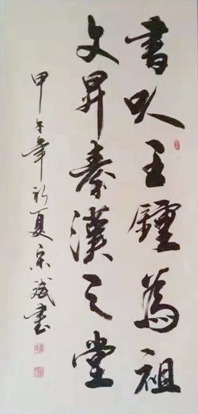 書以王鍾為祖
文昇秦漢之堂
甲午年初夏宋斌書